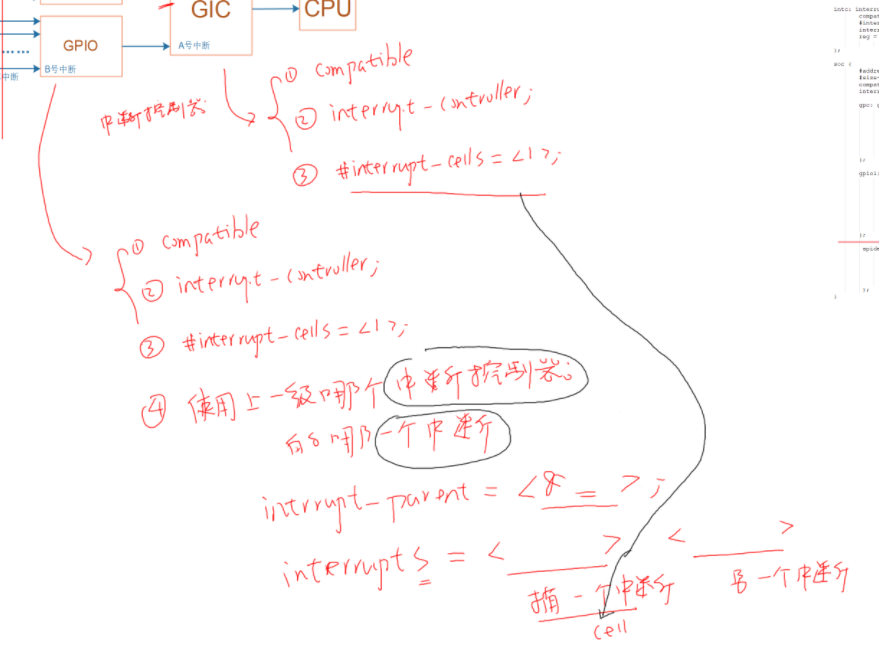 GIC
CPU
GPIO
A号中断
B号中断
……
中断
中断控制器
① compatible
② interrupt-controller;
③ #interrupt-cells = <1>;
① compatible
② interrupt-controller;
③ #interrupt-cells = <1>;
④ 使用上一级哪个中断控制器
的哪一个中断
intrrupt-parent = <& = >;
interrupts = < > < >
指一个中断 另一个中断
cell
intc: interru
compat
#inter
interr
reg =
};
soc {
#addre
#size-
compat
interr
gpc: g
};
gpio1:
};
};
}